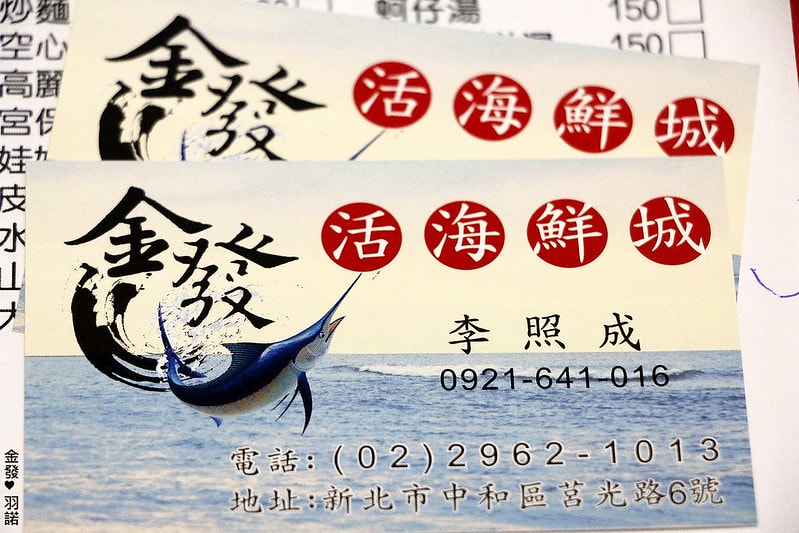 炒麵
蚵仔湯 150
空心
湯 150
高麗
宮保
娃
皮
水
山
金發
活海鮮城
金發
活海鮮城
李照成
0921-641-016
電話:(02)2962-1013
地址:新北市中和區莒光路6號
金發♥羽諾